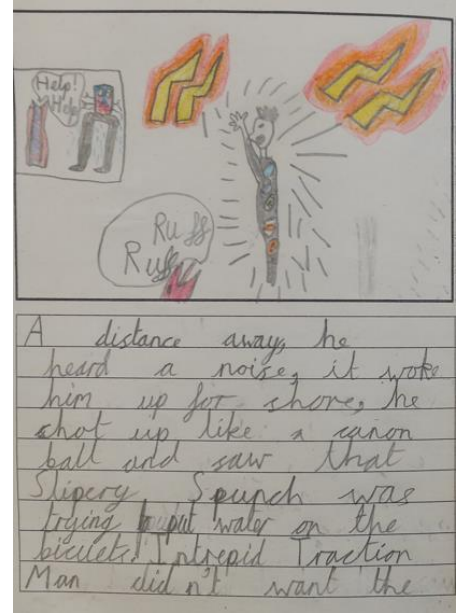 Help!
Help
Ruff
Ruff
A distance away, he
heard a noise, it woke
him up for shore, he
shot up like a canon
ball and saw that
Slipery Spunch was
trying to put water on the
bicuiets. Intrepid Traction
Man didn't want the